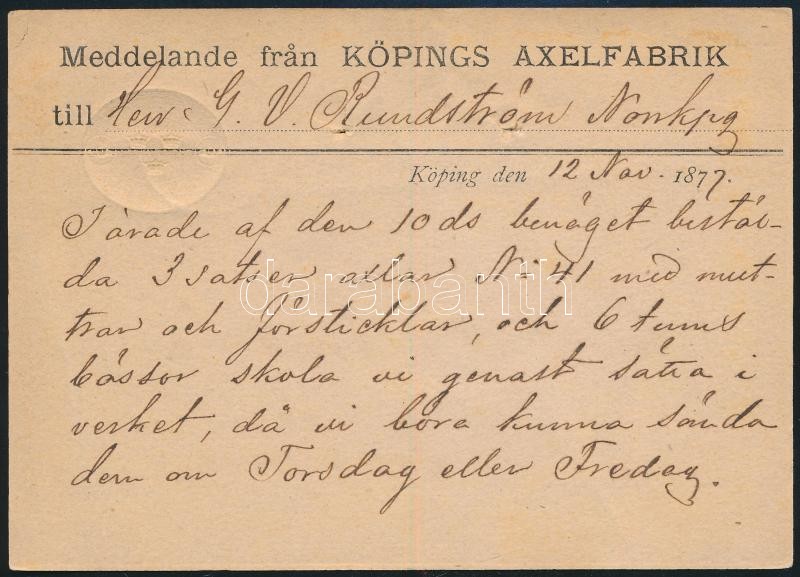 Meddelande från KÖPINGS AXELFABRIK
till Herr G. V. Rundström Norrkpg
Köping den 12 Nov. 1877.
I ärade af den 10 ds benäget bestäl-
da 3 satser axlar No 41 med mut-
trar och försticklar, och 6 tums
bössor skola vi genast sätta i
verket, då vi böra kunna sända
dem om Torsdag eller Fredag.
darabanth